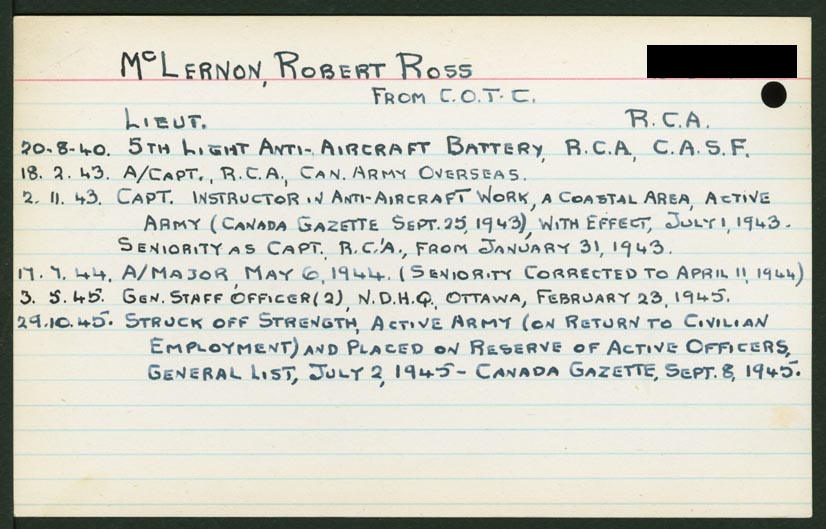 McLERNON, ROBERT ROSS
FROM C.O.T.C.
LIEUT. R.C.A.
20-8-40. 5TH LIGHT ANTI-AIRCRAFT BATTERY, R.C.A., C.A.S.F.
18. 2. 43. A/CAPT., R.C.A., CAN. ARMY OVERSEAS.
2. 11. 43. CAPT. INSTRUCTOR IN ANTI-AIRCRAFT WORK, A COASTAL AREA, ACTIVE
ARMY (CANADA GAZETTE SEPT. 25, 1943), WITH EFFECT, JULY 1, 1943.
SENIORITY AS CAPT. R.C.A., FROM JANUARY 31, 1943.
17. 7. 44. A/MAJOR, MAY 6, 1944. (SENIORITY CORRECTED TO APRIL 11, 1944)
3. 5. 45. GEN. STAFF OFFICER (2), N.D.H.Q., OTTAWA, FEBRUARY 23, 1945.
29.10.45. STRUCK OFF STRENGTH, ACTIVE ARMY (ON RETURN TO CIVILIAN
EMPLOYMENT) AND PLACED ON RESERVE OF ACTIVE OFFICERS,
GENERAL LIST, JULY 2, 1945 - CANADA GAZETTE, SEPT. 8, 1945.